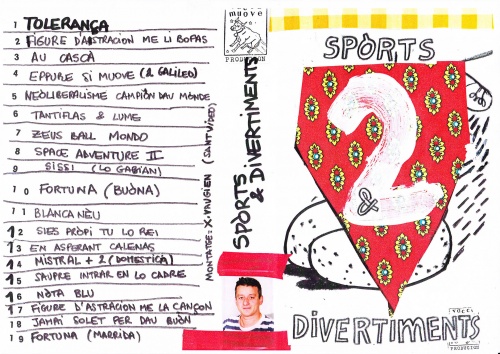 1 TOLERANÇA
2 FIGURE D'ASTRACION ME LI BOPAS
3 AU CASCÀ
4 EPPURE SI MUOVE (A GALILEO)
5 NEOLIBERALISME CAMPIÒN DAU MONDE
6 TANTIFLAS & LUME
7 ZEUS BALL MONDO
8 SPACE ADVENTURE II
9 SISSI (LO GABIAN)
10 FORTUNA (BUÒNA)
11 BLANCA NÈU
12 SIES PRÒPI TU LO REI
13 EN ASPERANT CALENAS
14 MISTRAL + 2 (DOMESTICA)
15 SAUPRE INTRAR EN LO CADRE
16 NÒTA BLU
17 FIGURE D'ASTRACION ME LA CANÇON
18 JAMAI SOLET PER DAU BUÒN
19 FORTUNA (MARRIDA)
MONTATGE: X. VAUGIEN (SANT VIDEO)
muove
PRODUCION
SPÒRTS
& DIVERTIMENTS
SPÒRTS
2
&
DIVERTIMENTS
PRODUCION